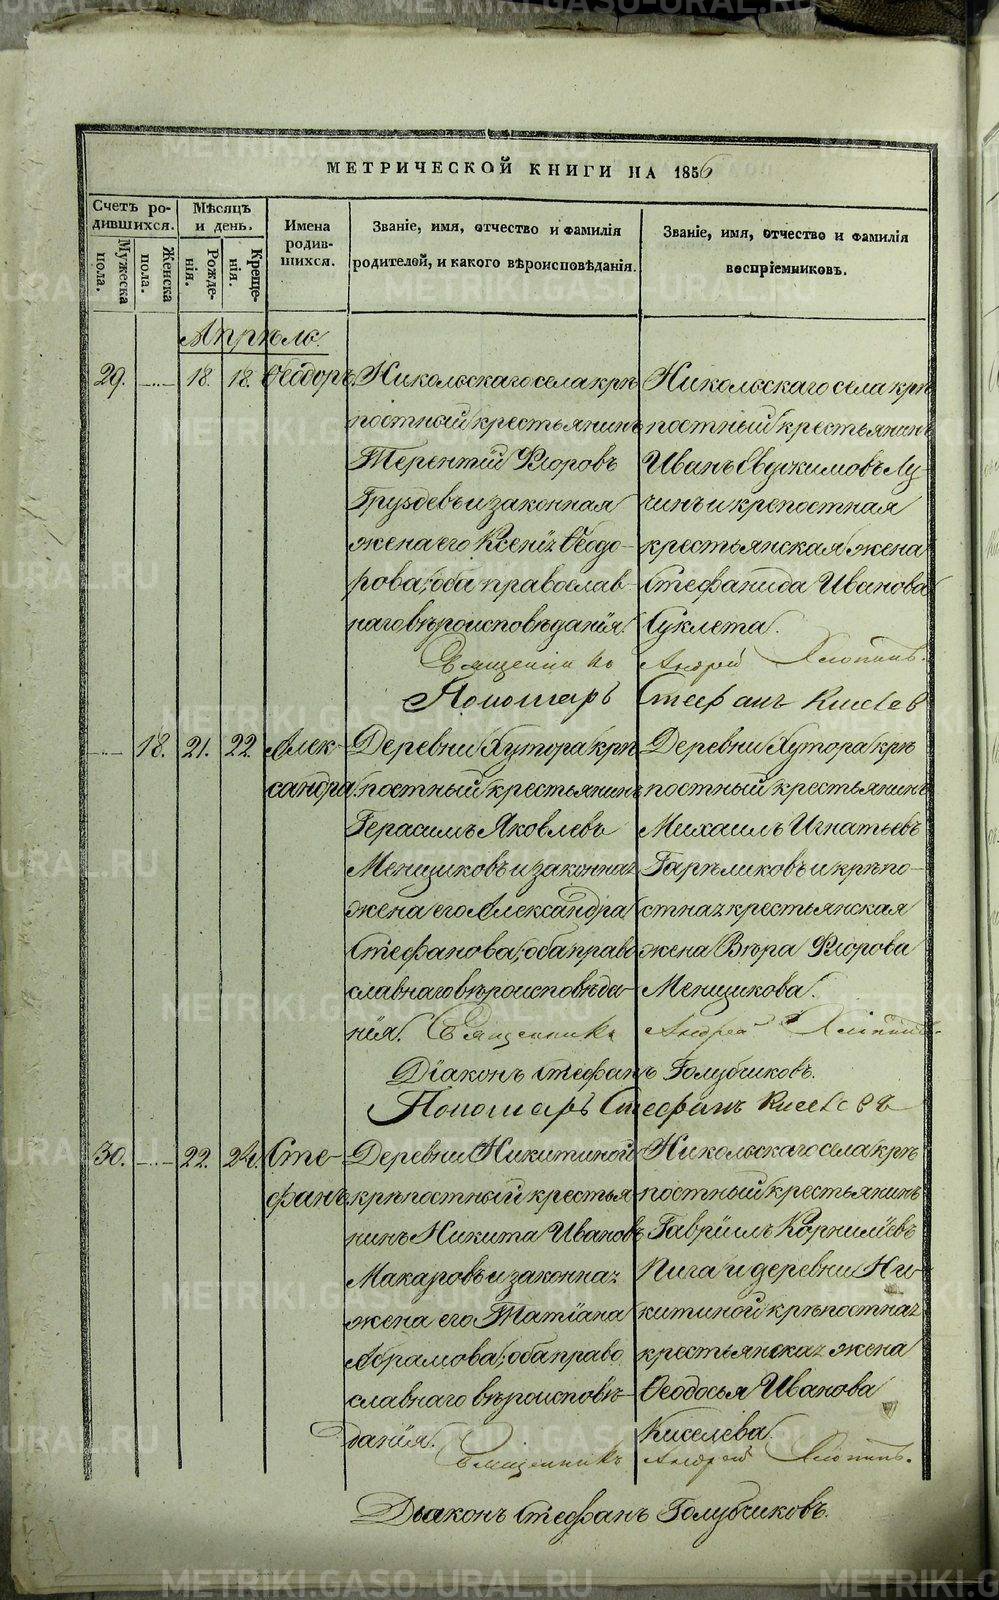 МЕТРИЧЕСКОЙ КНИГИ НА 1856
Счетъ ро-
дившихся.
Мужеска пола.
Женска пола.
Мѣсяцъ
и день.
Рожде-
нія.
Креще-
нія.
Имена
родив-
шихся.
Званіе, имя, отчество и фамилія
родителей, и какого вѣроисповѣданія.
Званіе, имя, отчество и фамилія
воспріемниковъ.
Апрѣль.
29. 18. 18. Ѳеодоръ.
Никольскаго села крѣ
постный крестьянинъ
Терентій Флоровъ
Груздевъ и законная
жена его Ксенія Ѳеодо-
рова; оба православ-
наго вѣроисповѣданія.
Никольскаго села крѣ
постный крестьянинъ
Иванъ Евдокимовъ Лу-
чинъ и крепостная
крестьянская жена
Стефанида Иванова
Суклета.
Священникъ Андрей Хлопинъ.
Пономарь Стефанъ Киселев
18. 21. 22. Алек-
сандра.
Деревни Хутора крѣ
постный крестьянинъ
Герасимъ Яковлевъ
Меншиковъ и законная
жена его Александра
Стефанова; оба право
славнаго вѣроисповѣда-
нія.
Деревни Хутора крѣ
постный крестьянинъ
Михаилъ Игнатьевъ
Гарѣликовъ и крѣпо-
стная крестьянская
жена Вѣра Флорова
Меншикова.
Священникъ Андрей Хлопинъ.
Діаконъ Стефанъ Голубчиковъ.
Пономарь Стефанъ Киселевъ
30. 22. 24. Сте-
фанъ.
Деревни Никитиной
крѣпостный крестья
нинъ Никита Ивановъ
Макаровъ и законная
жена его Татіана
Абрамова; оба право
славнаго вѣроисповѣ-
данія.
Никольскаго села крѣ
постный крестьянинъ
Гавріилъ Корниліевъ
Пига и деревни Ни-
китиной крѣпостная
крестьянская жена
Ѳеодосья Иванова
Киселева.
Священникъ Андрей Хлопинъ.
Діаконъ Стефанъ Голубчиковъ.
METRIKI.GASO-URAL.RU